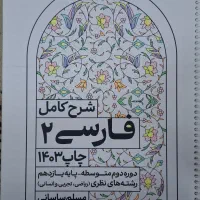 شرح کامل
فارسی ۲
چاپ ۱۴۰۳
دوره دوم متوسطه - پایه یازدهم
رشته‌های نظری (ریاضی، تجربی و انسانی)
مسلم ساسانی